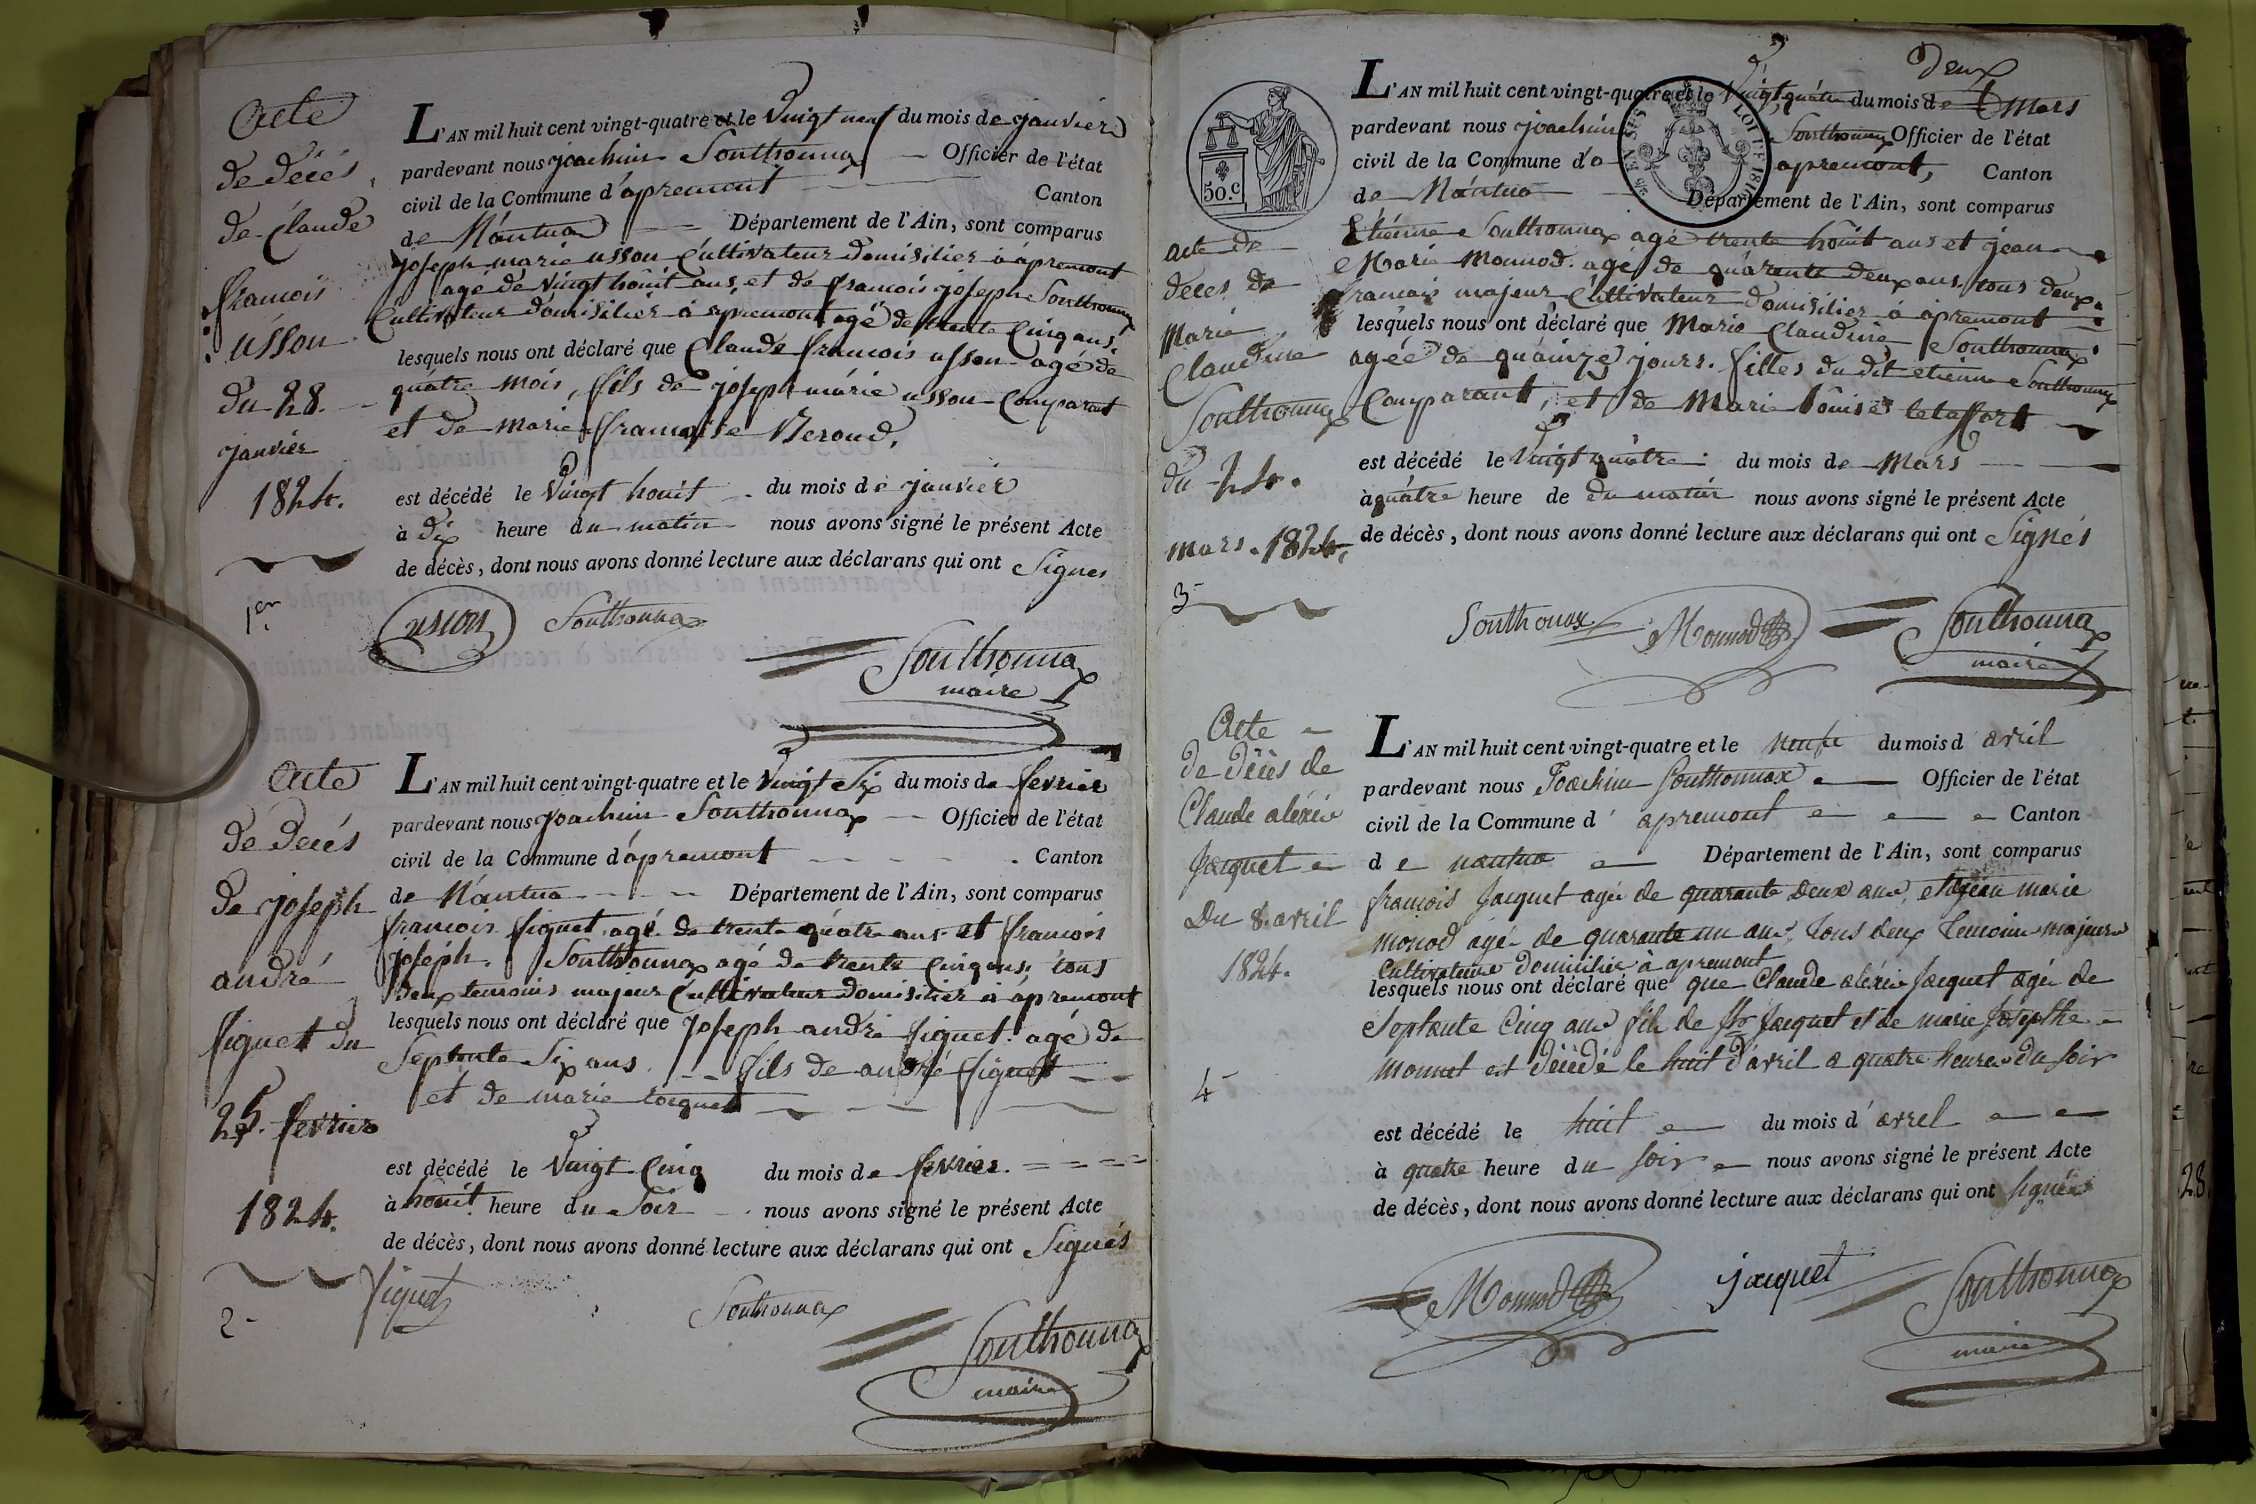 Acte
de décés
de Claude
francois
usson
du 28.
janvier
1824.
1er
L'AN mil huit cent vingt-quatre et le Vingt neuf du mois de janvier
pardevant nous joachim Southonnax Officier de l'état
civil de la Commune d'apremont Canton
de Nántua Département de l'Ain, sont comparus
joseph marie usson Cultivateur domisilier à ápremont
agé de vingt hôuit ans, et de francois joseph Southonnax
Cultivateur domisilier á apremont agé de trente Cinq ans,
lesquels nous ont déclaré que Claude francois usson agé de
quátre mois, fils de joseph márie usson Comparant
et de marie francoise Neroud,
est décédé le Vingt houit du mois de janvier
à dix heure du matin nous avons signé le présent Acte
de décès, dont nous avons donné lecture aux déclarans qui ont Signes
usson Southonnax
Southonnax
maire
Acte
de décés
de joseph
andré
figuet du
25. fevrier
1824.
2
L'AN mil huit cent vingt-quatre et le Vingt Six du mois de fevrier
pardevant nous joachim Southonnax Officier de l'état
civil de la Commune d'ápremont Canton
de Nántua Département de l'Ain, sont comparus
francois figuet, agé de trente quátre ans et francois
joseph. Southonnax agé de trente Cinq ans, tous
deux temoins majeur Cultivateur domisilier à ápremont
lesquels nous ont déclaré que joseph andré figuet agé de
Septente Six ans. fils de andré figuet
et de marie
est décédé le Vingt Cinq du mois de fevrier
à hôuit heure du Soir nous avons signé le présent Acte
de décès, dont nous avons donné lecture aux déclarans qui ont Signés
figuet Southonnax
Southonnax
maire
50.c
acte de
déces de
Marie
Claudine
Southonnax
du 24.
mars. 1824,
3
deux
L'AN mil huit cent vingt-quatre et le Vingt quátre du mois de Mars
pardevant nous joachim Southonnax Officier de l'état
civil de la Commune d'a apremont, Canton
de Nántua Département de l'Ain, sont comparus
Etiénne Southonnax agé trente hôuit ans et jean
Marie Monnod. agé de quárante deux ans, tous deux
francais majeur Cultivateur domisilier à ápremont
lesquels nous ont déclaré que Marie Claudine Southonnax
agéé de quáinze jours. filles du dit etienne Southonnax
Comparant, et de Marie lôuise
est décédé le Vingt quátre du mois de Mars
à quátre heure de du matin nous avons signé le présent Acte
de décès, dont nous avons donné lecture aux déclarans qui ont Signés
Southonax Monnod Southonnax
maire
Acte
de décès de
Claude aléxis
Jacquet
Du 8. avril
1824.
4
L'AN mil huit cent vingt-quatre et le neufe du mois d avril
pardevant nous Joachim Southonnax Officier de l'état
civil de la Commune d' apremont Canton
de nantua Département de l'Ain, sont comparus
francois Jacquet agé de quarante deux ans, et jean marie
monod agé de quarante un ans, tous deux temoins majeurs
Cultivateurs domicilier à apremont
lesquels nous ont déclaré que que Claude aléxis Jacquet agé de
Septante Cinq ans fils de Jacquet et de marie Josephte
Monnet est décédé le huit d'avril a quatre heures du soir
est décédé le huit du mois d' avrel
à quatre heure du soir nous avons signé le présent Acte
de décès, dont nous avons donné lecture aux déclarans qui ont signés
Monnod jacquet Southonnax
maire
28